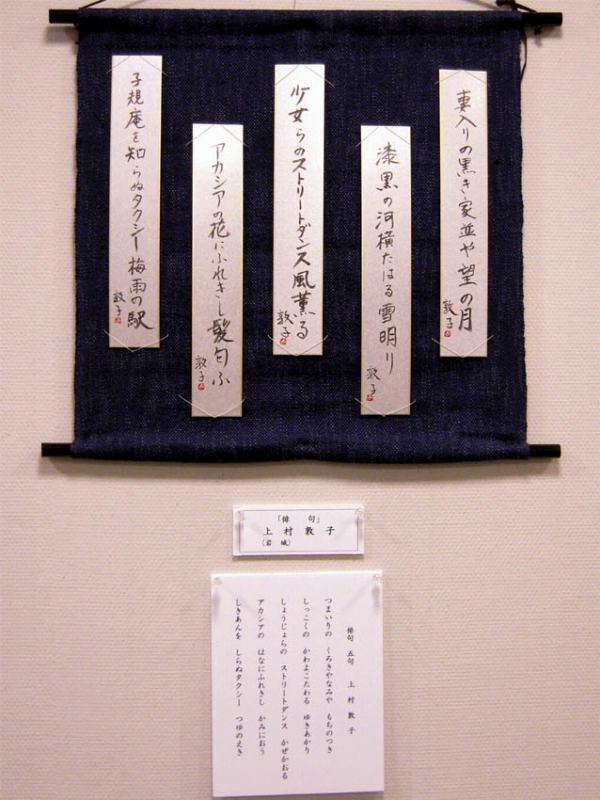 妻入りの黒き家並や望の月
敦子
漆黒の河横たはる雪明り
敦子
少女らのストリートダンス風薫る
敦子
アカシアの花にふれきし髪匂ふ
敦子
子規庵を知らぬタクシー梅雨の駅
敦子
「俳 句」
上 村 敦 子
(岩 城)
俳句 五句 上 村 敦 子
つまいりの くろきやなみや もちのつき
しっこくの かわよこたわる ゆきあかり
しょうじょらの ストリートダンス かぜかおる
アカシアの はなにふれきし かみにおう
しきあんを しらぬタクシー つゆのえき